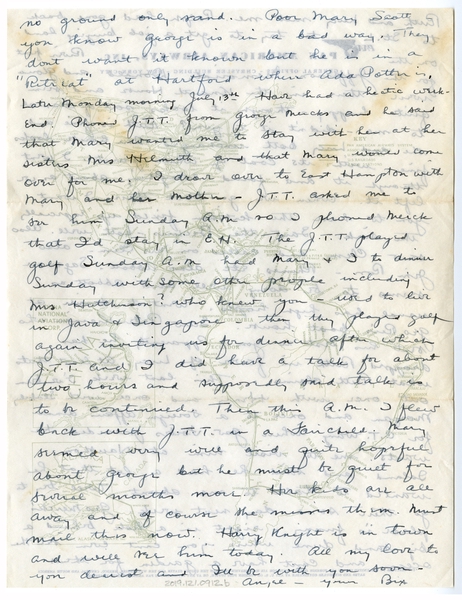 no ground only sand. Poor Mary Scott
you know george is in a bad way. They
dont want it known but he is in a
"Retreat" at Hartford where Ada Potter is.
Later Monday morning July 13th Have had a hectic week-
End. Phoned J.T.T. from george Mercks and he said
that Mary wanted me to stay with her at her
sisters Mrs Helmuth and that Mary would come
over for me. I drove over to East Hampton with
Mary and her mother. J.T.T. asked me to
see him Sunday A.M. so I phoned Merck
that I'd stay in E.H. The J.T.T. played
golf Sunday A.M. had Mary & I to dinner
Sunday with some other people including
Mrs Hutchinson? who knew you - used to live
in Java & Singapore then they played golf
again inviting us for dinner after which
J.T.T. and I did have a talk for about
two hours and supposedly said talk is
to be continued. Then this A.M. I flew
back with J.T.T. in a Fairchild. Mary
seemed very well and quite hopeful
about george but he must be quiet for
several months more. Her kids are all
away and of course she misses them. Must
mail this now. Harry Knight is in town
and will see him today. All my love to
you dearest and I'll be with you soon-
- your Bix
2019.121.0912b
NATIONAL